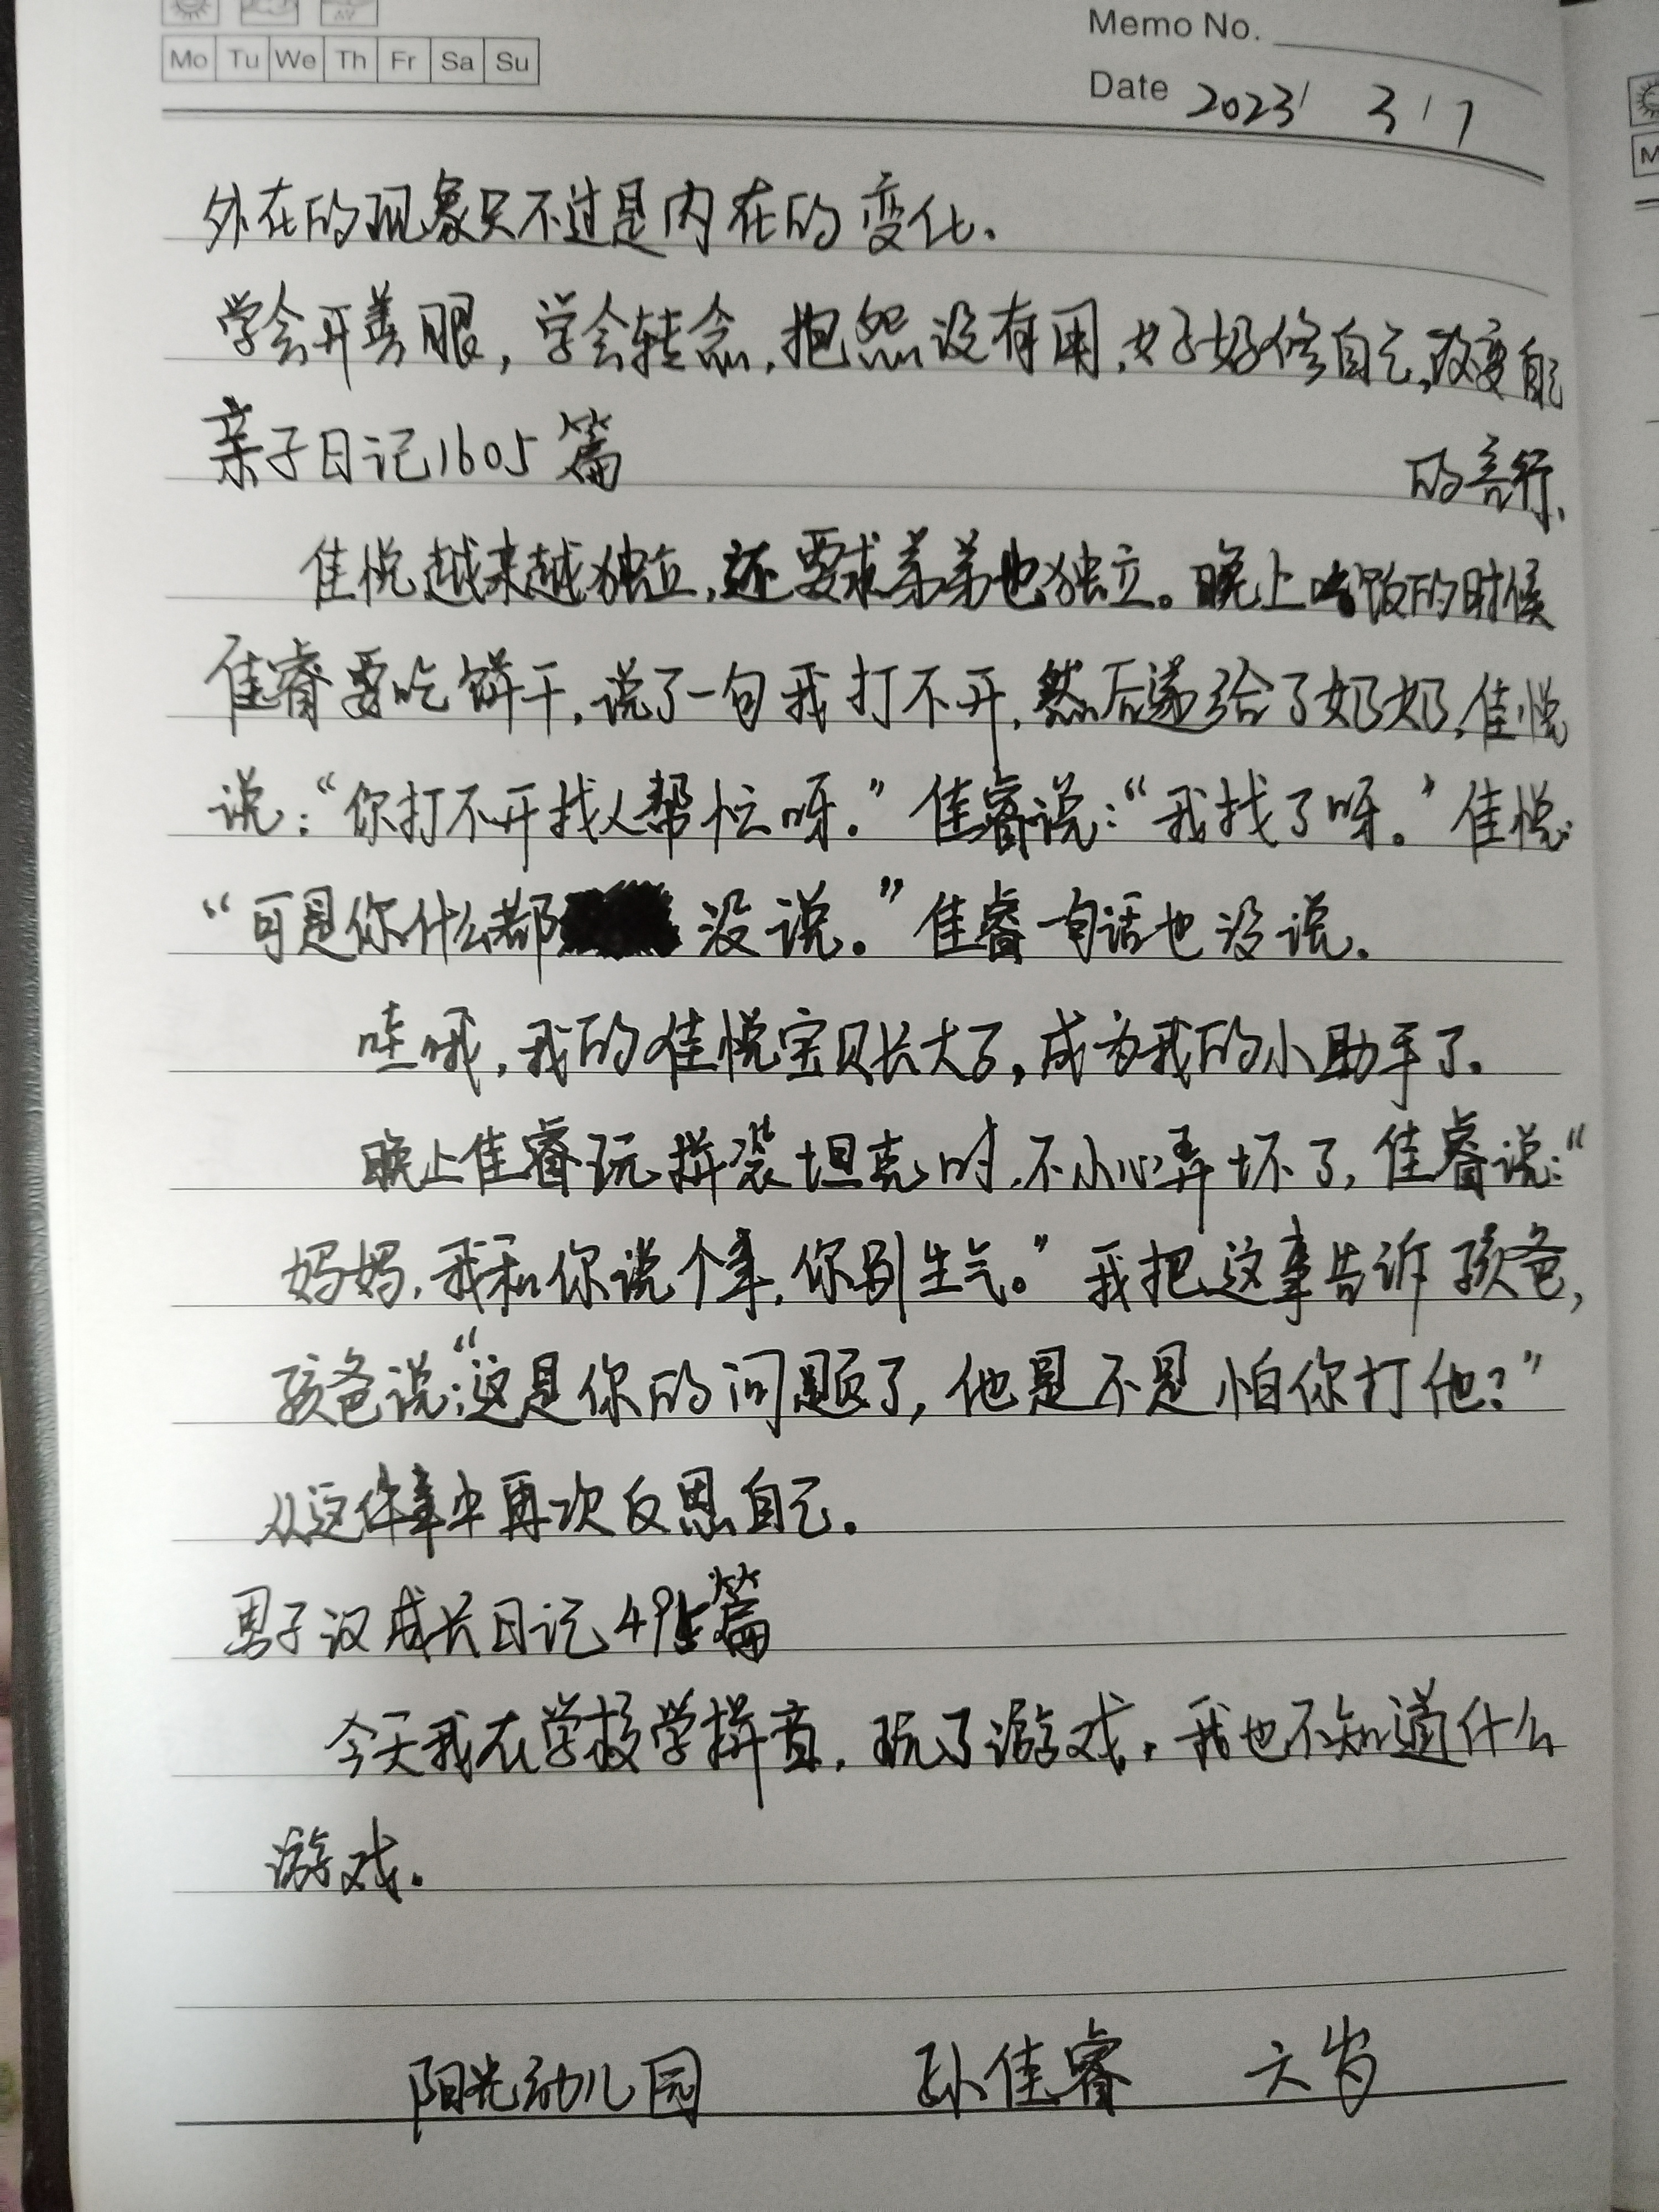 Memo No.
Mo Tu We Th Fr Sa Su
Date 2023/ 3 / 7
外在的现象只不过是内在的变化.
学会开善眼，学会转念,抱怨没有用,好好修自己,改变自己
的言行、
亲子日记1605篇
佳悦越来越独立,还要求弟弟也独立。晚上吃饭的时候
佳睿要吃饼干,说了一句我打不开,然后递给了奶奶,佳悦
说:“你打不开找人帮忙呀。”佳睿说:“我找了呀。”佳悦:
“可是你什么都没说。”佳睿一句话也没说.
哇哦,我的佳悦宝贝长大了,成为我的小助手了.
晚上佳睿玩拼装坦克时.不小心弄坏了,佳睿说:“
妈妈,我和你说个事,你别生气。”我把这事告诉孩爸,
孩爸说:“这是你的问题了,他是不是怕你打他?”
从这件事中再次反思自己.
男子汉成长日记495篇
今天我在学校学拼音,玩了游戏,我也不知道什么
游戏.
阳光幼儿园 孙佳睿 六岁